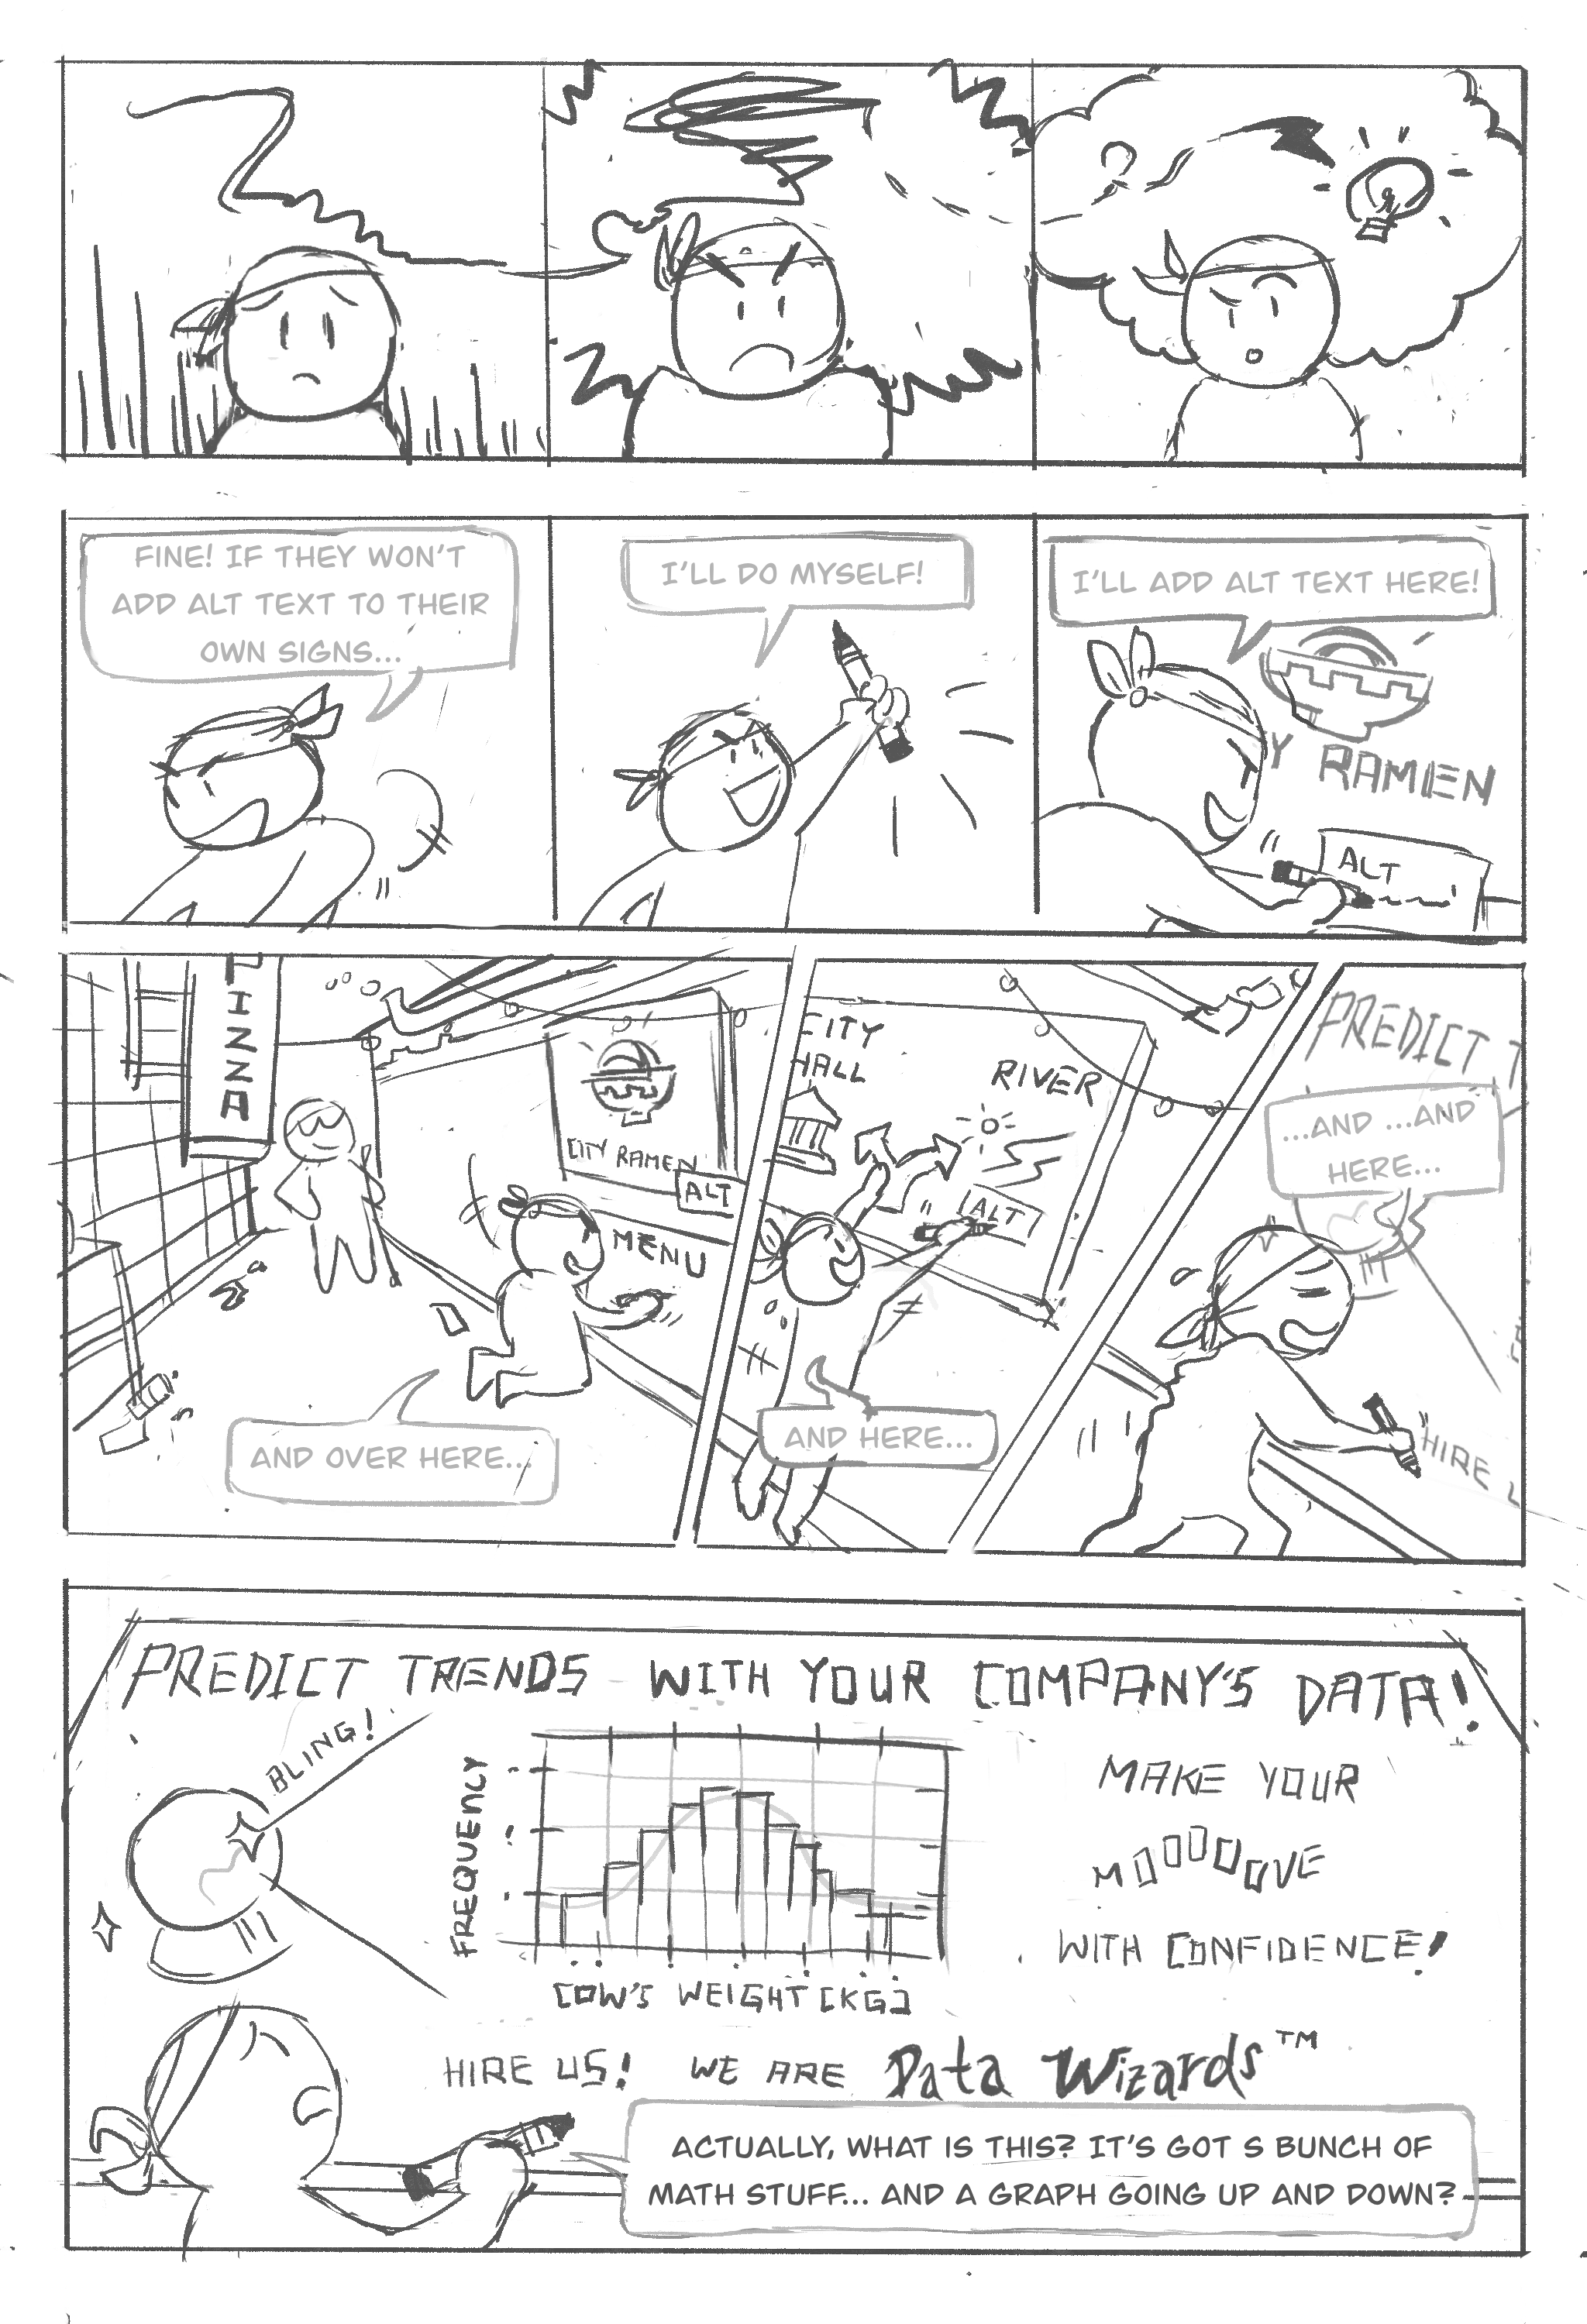 FINE! IF THEY WON'T
ADD ALT TEXT TO THEIR
OWN SIGNS...
I'LL DO MYSELF!
I'LL ADD ALT TEXT HERE!
Y RAMEN
ALT
PIZZA
CITY RAMEN
ALT
MENU
AND OVER HERE...
CITY
HALL
RIVER
ALT
AND HERE...
PREDICT T
...AND ...AND
HERE...
HIRE
PREDICT TRENDS WITH YOUR COMPANY'S DATA!
BLING!
FREQUENCY
COW'S WEIGHT [KG]
MAKE YOUR
MOOOOVE
WITH CONFIDENCE!
HIRE US! WE ARE Data Wizards™
ACTUALLY, WHAT IS THIS? IT'S GOT S BUNCH OF
MATH STUFF... AND A GRAPH GOING UP AND DOWN?